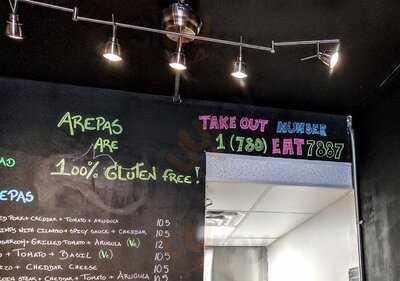 AREPAS
ARE
100% GLUTEN FREE!
TAKE OUT NUMBER
1 (780) EAT 7887
CHEDDAR + TOMATO + ARUGULA 10.5
WITH CILANTRO + SPICY SAUCE + CHEDDAR 10.5
+ GRILLED TOMATO + ARUGULA (VG) 12
+ TOMATO + BASIL (VG) 10.5
+ CHEDDAR CHEESE 10.5
STEAK + CHEDDAR + TOMATO + ARUGULA 10.5